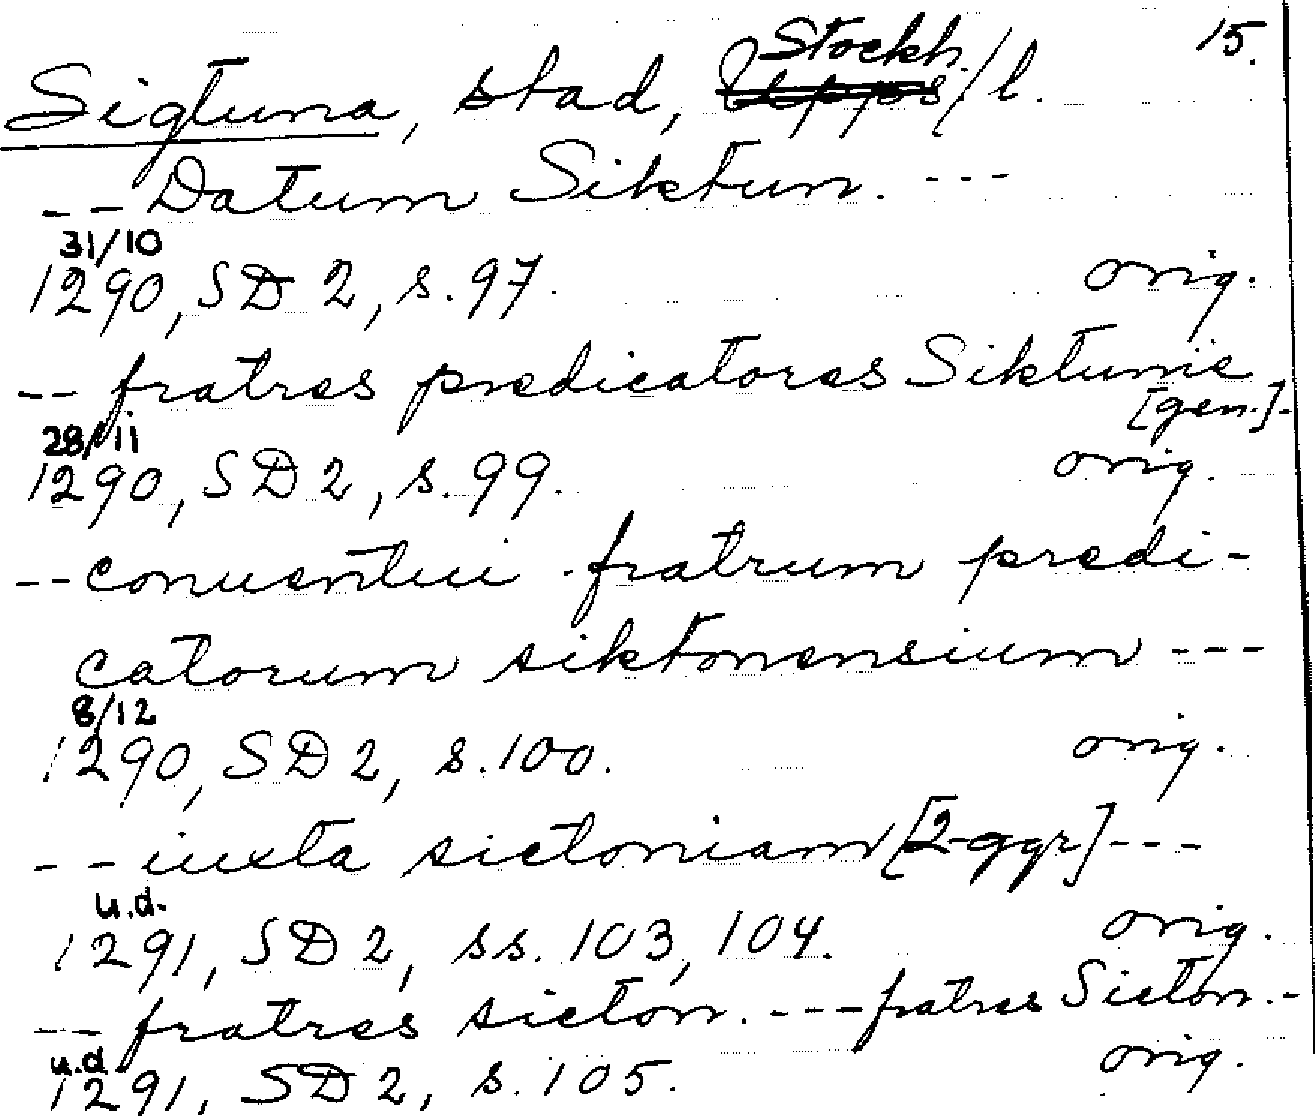 15.
Sigtuna, stad, Stockh./l.
-- Datum Siktun. ---
31/10
1290, SD 2, s. 97. orig.
-- fratres predicatores Siktunie
[gen.]-
28/11
1290, SD 2, s. 99. orig.
-- conuentui fratrum predi-
catorum siktonensium ---
8/12
1290, SD 2, s. 100. orig.
-- iuxta sictoniam [2 ggr] ---
u.d.
1291, SD 2, ss. 103, 104. orig.
-- fratres sicton. --- fratres Sicton. -
u.d.
1291, SD 2, s. 105. orig.